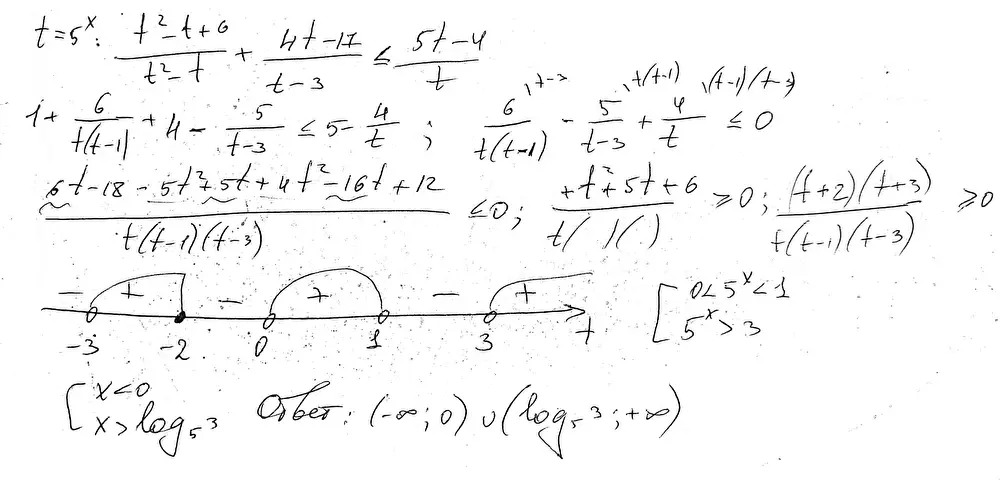 t=5^x: (t²-t+6)/(t²-t) + (4t-17)/(t-3) ≤ (5t-4)/t
1+ 6/(t(t-1)) +4- 5/(t-3) ≤ 5- 4/t ; 6/(t(t-1)) ^(\t-3) - 5/(t-3) ^(\t(t-1)) + 4/t ^(\(t-1)(t-3)) ≤ 0
(6t-18-5t²+5t+4t²-16t+12)/(t(t-1)(t-3)) ≤0; (+t²+5t+6)/(t( )( )) ≥0; ((t+2)(t+3))/(t(t-1)(t-3)) ≥0
- + - + - +
-3 -2 0 1 3 t
[ 0<5^x<1
5^x>3
[ x<0
x>log₅3 Ответ: (-∞;0)∪(log₅3;+∞)